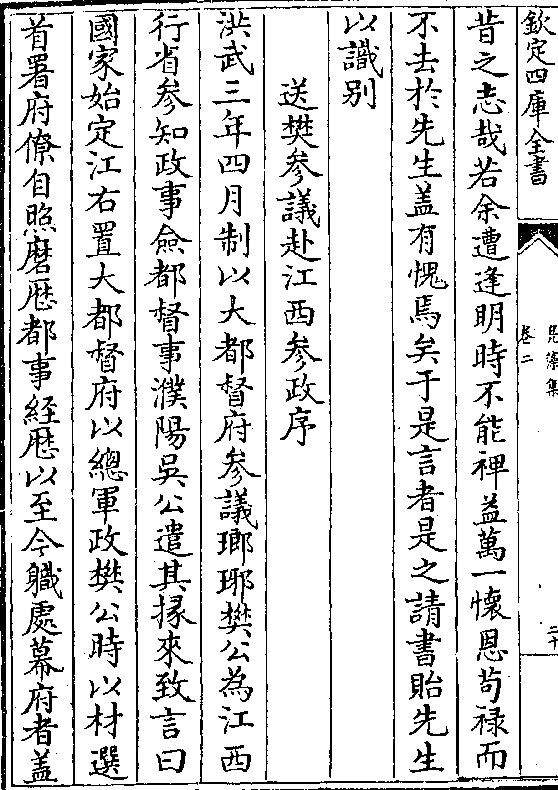 欽定四庫全書
鳧藻集
卷二
二十
昔之志哉若余遭逢明時不能裨益萬一懷恩茍祿而
不去於先生蓋有愧焉矣于是言者是之請書貽先生
以識别
送樊參議赴江西參政序
洪武三年四月制以大都督府參議瑯琊樊公為江西
行省參知政事僉都督事濮陽吳公遣其掾來致言曰
國家始定江右置大都督府以總軍政樊公時以材選
首署府僚自照磨歴都事經歴以至今職處幕府者蓋